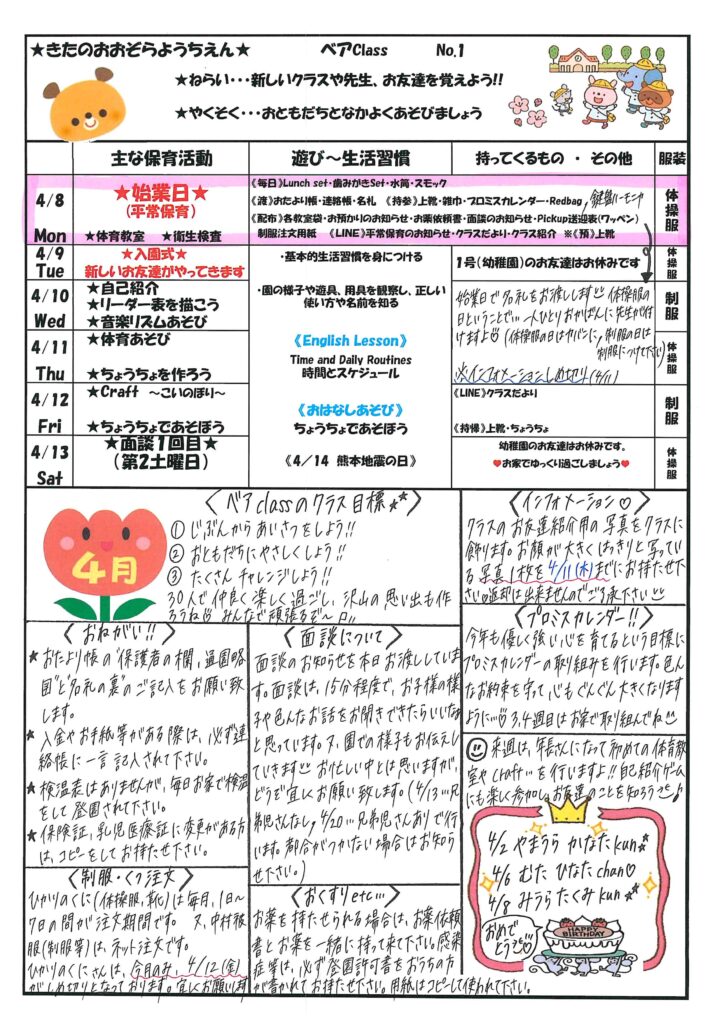 ★きたのおおぞらようちえん★ ベアClass No.1
★ねらい・・・新しいクラスや先生、お友達を覚えよう!!
★やくそく・・・おともだちとなかよくあそびましょう
主な保育活動 遊び～生活習慣 持ってくるもの ・ その他 服装
4/8 Mon
★始業日★
(平常保育)
★体育教室 ★衛生検査
《毎日》Lunch set・歯みがきSet・水筒・スモック
《渡》おたより帳・連絡帳・名札 《持参》上靴・雑巾・プロミスカレンダー・Redbag,鍵盤ハーモニヤ
《配布》各教室袋・お預かりのお知らせ・お薬依頼書・面談のお知らせ・Pickup送迎表(ワッペン)
制服注文用紙 《LINE》平常保育のお知らせ・クラスだより・クラス紹介 ※《預》上靴
体操服
4/9 Tue
★入園式★
新しいお友達がやってきます
・基本的生活習慣を身につける
1号(幼稚園)のお友達はお休みです
体操服
4/10 Wed
★自己紹介
★リーダー表を描こう
★音楽リズムあそび
・園の様子や遊具、用具を観察し、正しい
使い方や名前を知る
始業日で名札をお渡しします 体操服の
日ということで…一人ひとりおかばんに先生が付
けますよ♡(体操服の日はカバンに,制服の日は
制服につけて下さい)
※インフォメーションしめ切り(4/11)
制服
4/11 Thu
★体育あそび
★ちょうちょを作ろう
《English Lesson》
Time and Daily Routines
時間とスケジュール
体操服
4/12 Fri
★Craft ～こいのぼり～
★ちょうちょであそぼう
《おはなしあそび》
ちょうちょであそぼう
《LINE》クラスだより
《持帰》上靴・ちょうちょ
制服
4/13 Sat
★面談1回目★
(第2土曜日)
《4/14 熊本地震の日》
幼稚園のお友達はお休みです。
♥お家でゆっくり過ごしましょう♥
体操服
4月
〈ベアclassのクラス目標★★〉
① じぶんからあいさつをしよう!!
② おともだちにやさしくしよう!!
③ たくさんチャレンジしよう!!
30人で仲良く楽しく過ごし、沢山の思い出も作
ろうね♡ みんなで頑張るぞ～
〈インフォメーション♡〉
クラスのお友達紹介用の写真をクラスに
飾ります。お顔が大きくはっきりと写ってい
る写真1枚を4/11(木)までにお持たせ下
さい♡返却は出来ませんのでご了承下さい
〈プロミスカレンダー!!〉
今年も優しく強い心を育てるという目標に
プロミスカレンダーの取り組みを行います。色ん
なお約束を守って,心もぐんぐん大きくなります
ように…♡ 3,4週目はお家で取り組んでね
来週は,年長さんになって初めての体育教
室やCraft…を行いますよ!!自己紹介ゲーム
にも楽しく参加し,お友達のことを知ろう♪
〈おねがい!!〉
★おたより帳の"保護者の欄,通園略
図"と"名札の裏"のご記入をお願い致
します。
★入金やお手紙等がある際は,必ず連
絡帳に一言記入されて下さい。
★検温表はありませんが,毎日お家で検温
をして登園されて下さい。
★保険証,乳児医療証に変更がある方
は,コピーをしてお持たせ下さい。
〈面談について〉
面談のお知らせを本日お渡ししていま
す。面談は,15分程度で,お子様の様
子や色んなお話をお聞きできたらいいな
と思っています。又,園での様子もお伝えし
ていきます お忙しい中とは思いますが,
どうぞ宜しくお願い致します。(4/13…兄
弟児さんなし,4/20…兄弟児さんありで行
います。都合がつかない場合はお知ら
せ下さい。)
〈制服・くつ注文〉
ひかりのくに(体操服,靴)は毎月,1日～
7日の間が注文期間です。 又,中村被
服(制服等)は,ネット注文です。
ひかりのくにさんは,今月のみ 4/12(金)
がしめ切りとなっております。宜しくお願いします
〈おくすりetc…〉
お薬を持たせられる場合は,お薬依頼
書とお薬を一緒に持って来て下さい。感染
症等は,必ず登園許可書をおうちの方
が書かれてお持たせ下さい。用紙はコピーして使われて下さい。
4/2 やまうら かなた kun★
4/6 むた ひなた chan♡
4/8 みうら たくみ kun★
おめで
とう♡
HAPPY
BIRTHDAY